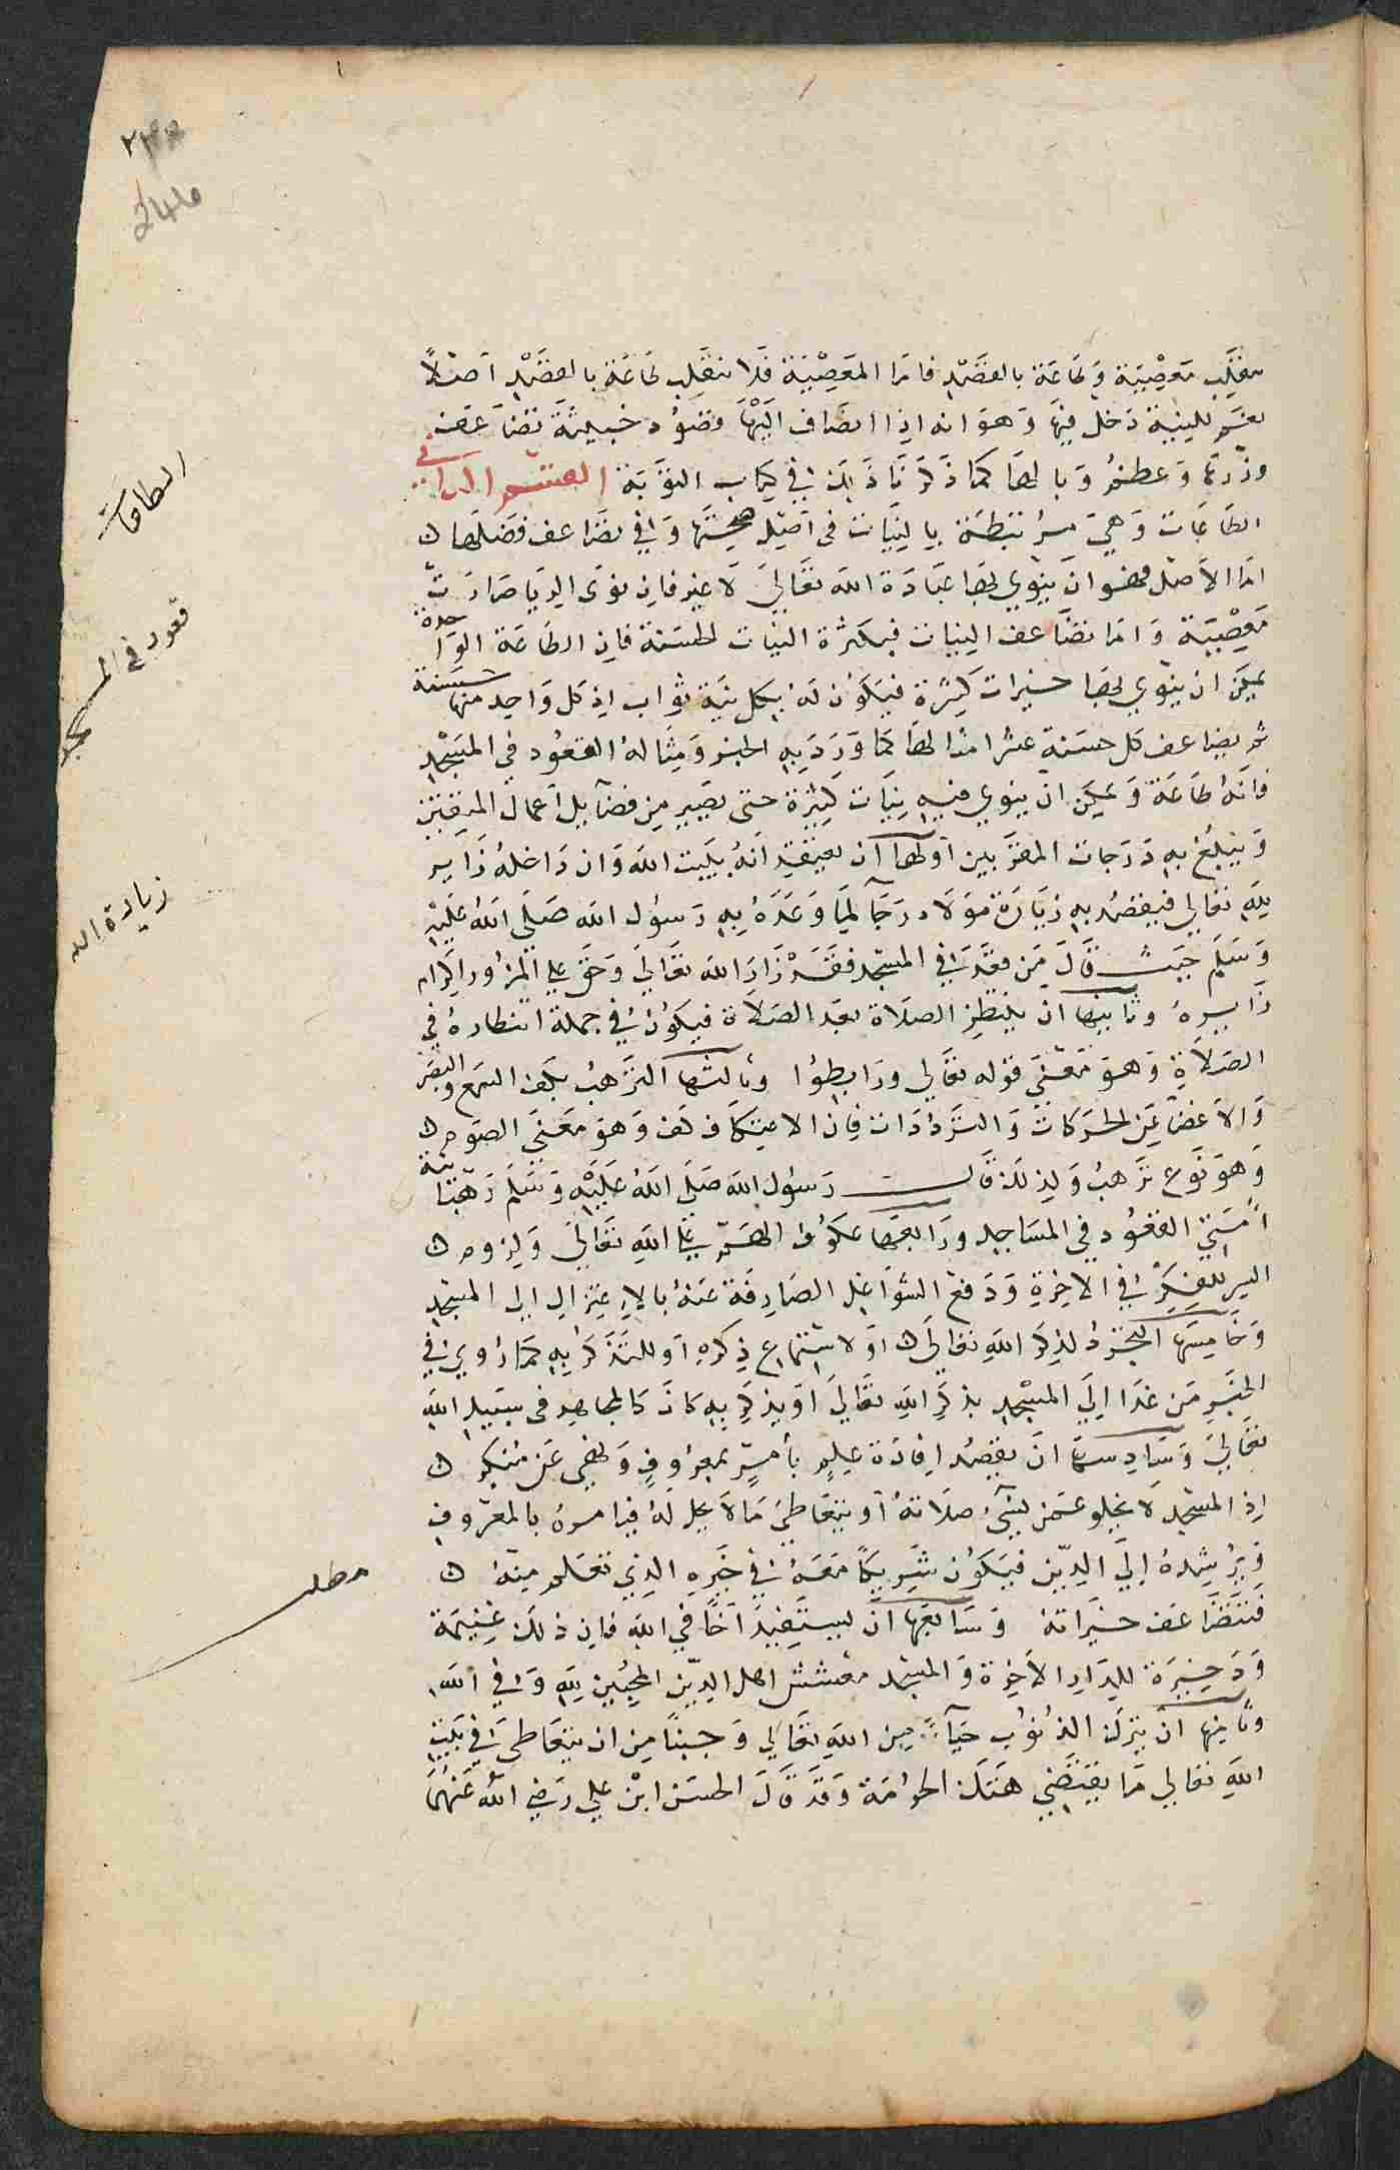 ٢٣٨
246
ينقلب معصية وطاعة بالقصد فاما المعصية فلا تنقلب طاعة بالقصد اصلاً
نعم للنية دخل فيها وهو انه اذا انضاف اليها قصود خبيثة تضاعف
وزرها وعظم وبالها كما ذكرنا ذلك في كتاب التوبة القسم الثاني
الطاعات وهي مرتبطة بالنيات في اصل صحتها وفي تضاعف فضلها
اما الاصل فهو ان ينوي بها عبادة الله تعالى لا غير فان نوى الريا صارت
معصية واما تضاعف النيات فبكثرة النيات الحسنة فان الطاعة الواحدة
يمكن ان ينوي بها خيرات كثيرة فيكون له بكل نية ثواب اذ كل واحد منها حسنة
ثم يضاعف كل حسنة عشر امثالها كما ورد به الخبر ومثاله القعود في المسجد
فانه طاعة ويمكن ان ينوي فيه نيات كثيرة حتى يصير من فضايل اعمال المتقين
ويبلغ به درجات المقربين اولها ان يعتقد انه بيت الله وان داخله زاير
لله تعالى فيقصد به زيارة مولاه رجآ لما وعده به رسول الله صلى الله عليه
وسلم حيث قال من قعد في المسجد فقد زار الله تعالى وحق على المزور اكرام
زايره وثانيها ان ينتظر الصلاة بعد الصلاة فيكون في جملة انتظاره في
الصلاة وهو معنى قوله تعالى ورابطوا وثالثها الترهب بكف السمع والبصر
والاعضا عن الحركات والترددات فان الاعتكاف كف وهو معنى الصوم
وهو نوع ترهب ولذلك قال رسول الله صلى الله عليه وسلم رهبانية
امتي القعود في المساجد ورابعها عكوف الهم على الله تعالى ولزوم
السر للفكر في الاخرة ودفع الشواغل الصارفة عنه بالاعتزال الى المسجد
وخامسها التجرد لذكر الله تعالى او لاستماع ذكره او للتذكر به كما روي في
الخبر من غدا الى المسجد بذكر الله تعالى او يذكر به كان كالمجاهد في سبيل الله
تعالى وسادسها ان يقصد افادة علم بامر بمعروف ونهي عن منكر
اذ المسجد لا يخلو عمن يسيء صلاته او يتعاطى ما لا يحل له فيامره بالمعروف
ويرشده الى الدين فيكون شريكا معه في خيره الذي تعلم منه
فتتضاعف خيراته وسابعها ان يستفيد اخا في الله فان ذلك غنيمة
وذخيرة للدار الاخرة والمسجد معشش اهل الدين المحبين لله وفي الله
وثامنها ان يترك الذنوب حياء من الله تعالى وحسبنا من ان يتعاطى في بيت
الله تعالى ما يقتضي هتك الحرمة وقد قال الحسن ابن علي رضي الله عنهما
الطاقات
قعود في المسجد
زيارة الله
مطلب